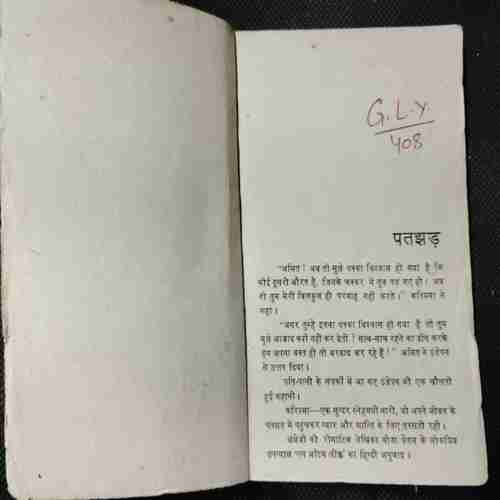 G.L.Y.
408
पतझड़
"अमित! अब तो मुझे पक्का विश्वास हो गया है कि
कोई दूसरी औरत है, जिसके चक्कर में तुम पड़ गए हो। अब
तो तुम मेरी बिलकुल ही परवाह नहीं करते।" करिश्मा ने
कहा।
"अगर तुम्हें इतना पक्का विश्वास हो गया है तो तुम
मुझे आजाद क्यों नहीं कर देतीं? साथ-साथ रहने का ढोंग करके
हम अपना वक्त ही तो बरबाद कर रहे हैं!" अमित ने ठंडेपन
से उत्तर दिया।
पति-पत्नी के संबंधों में आ गए ठंडेपन की एक खौलती
हुई कहानी।
करिश्मा—एक सुन्दर स्नेहमयी नारी, जो अपने जीवन के
पतझड़ में पहुंचकर प्यार और शान्ति के लिए तरसती रही।
अंग्रेजी की रोमांटिक लेखिका के लोकप्रिय
उपन्यास का हिन्दी अनुवाद।